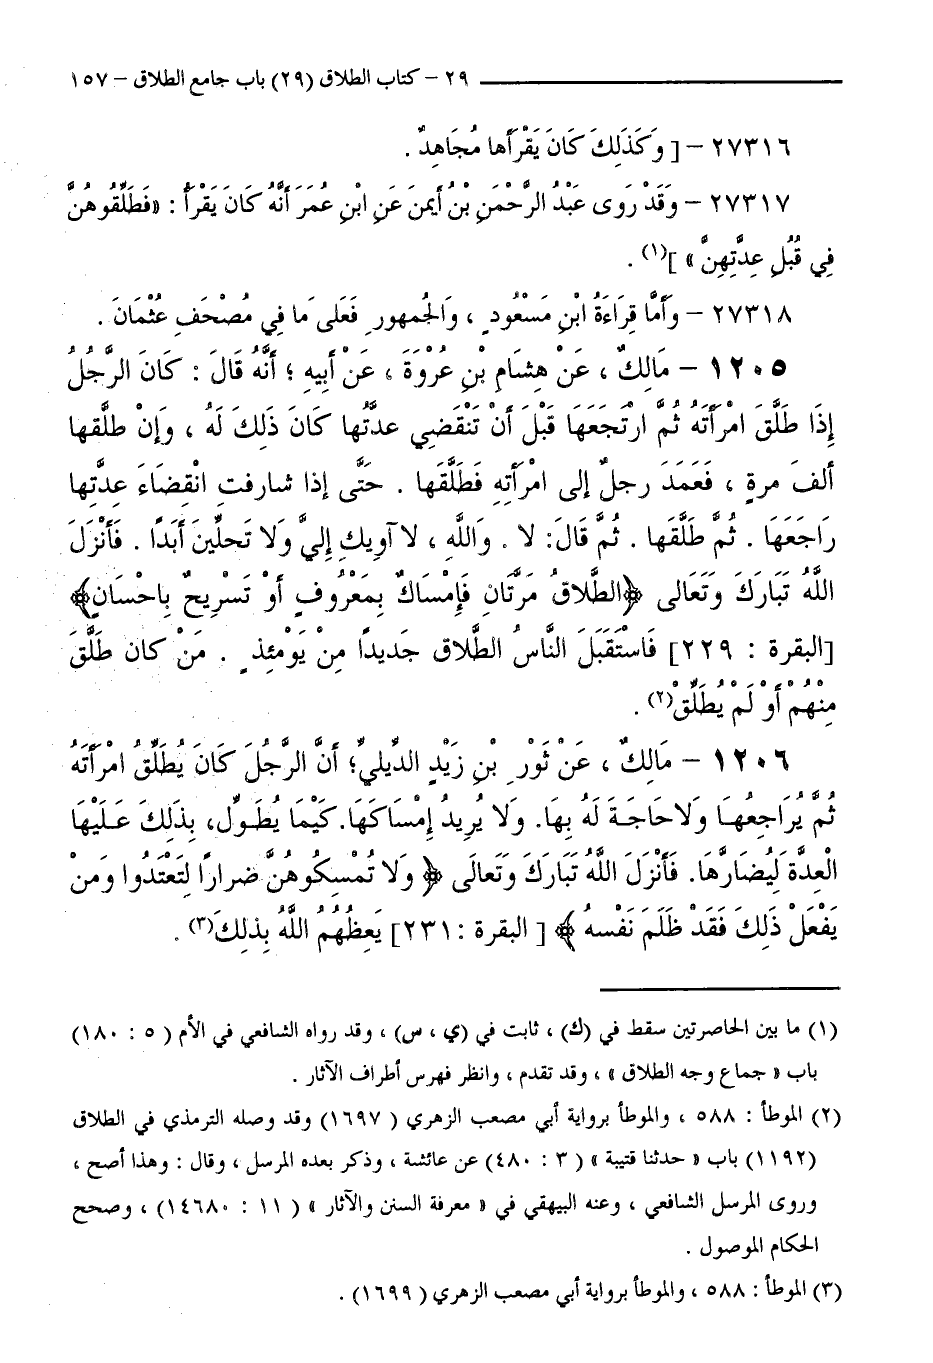 ٢٩ – كتاب الطلاق (٢٩) باب جامع الطلاق – ١٥٧
٢٧٣١٦ – [ وَكَذَلِكَ كَانَ يَقْرَأُها مُجَاهِدٌ .
٢٧٣١٧ – وَقَدْ رَوى عَبْدُ الرَّحْمَنِ بْنُ أَيمنَ عَنِ ابْنِ عُمَرَ أَنَّهُ كَانَ يَقْرَأُ : «فَطَلِّقُوهُنَّ
فِي قُبُلِ عِدَّتِهِنَّ » ](١) .
٢٧٣١٨ – وَأَمَّا قِرَاءَةُ ابْنِ مَسْعُودٍ ، وَالجُمهورِ فَعَلى مَا فِي مُصْحَفِ عُثْمَانَ .
١٢٠٥ – مَالِكٌ ، عَنْ هِشَامِ بْنِ عُرْوَةَ ، عَنْ أَبِيهِ ؛ أَنَّهُ قَالَ : كَانَ الرَّجُلُ
إِذَا طَلَّقَ امْرَأَتَهُ ثُمَّ ارْتَجَعَهَا قَبْلَ أَنْ تَنْقَضِي عدَّتُها كَانَ ذَلِكَ لَهُ ، وَإِنْ طلَّقها
ألفَ مرةٍ ، فَعَمَدَ رجلٌ إلى امْرَأَتِهِ فَطَلَّقَها . حَتَّى إذا شارفتِ انْقِضَاءَ عِدَّتِها
رَاجَعَهَا . ثُمَّ طَلَّقَها . ثُمَّ قَالَ: لا . وَاللَّهِ ، لا آوِيكِ إِليَّ وَلا تَحلِّينَ أَبَدًا . فَأَنْزَلَ
اللَّهُ تَبَارَكَ وَتَعَالى ﴿الطَّلاقُ مَرَّتَانِ فَإِمْسَاكٌ بِمَعْرُوفٍ أوْ تَسْرِيحٌ بِاحْسَانٍ﴾
[البقرة : ٢٢٩] فَاسْتَقَبَلَ النَّاسُ الطَّلاق جَديدًا مِنْ يَوْمئِذٍ . مَنْ كان طَلَّقَ
مِنْهُمْ أَوْ لَمْ يُطَلِّقْ(٢) .
١٢٠٦ – مَالِكٌ ، عَنْ ثَوْرِ بْنِ زَيْدٍ الدِّيليِّ؛ أَنَّ الرَّجُلَ كَانَ يُطَلِّقُ امْرأَتَهُ
ثُمَّ يُرَاجِعُهَا وَلاحَاجَةَ لَهُ بِهَا. وَلا يُرِيدُ إِمْسَاكَهَا. كَيْمَا يُطَوِّلُ، بِذَلِكَ عَلَيْهَا
الْعِدَّةَ لِيُضَارَّهَا. فَأَنْزَلَ اللَّهُ تَبَارَكَ وَتَعَالَى ﴿ وَلا تُمْسِكُوهُنَّ ضراراً لِتَعْتَدُوا وَمَنْ
يَفْعَلْ ذَلِكَ فَقَدْ ظَلَمَ نَفْسهُ ﴾ [ البقرة : ٢٣١] يَعِظُهُم اللَّهُ بِذلكَ(٣) .
(١) ما بين الحاصرتين سقط في (ك) ، ثابت في (ي ، س) ، وقد رواه الشافعي في الأم ( ٥ : ١٨٠)
باب « جماع وجه الطلاق » ، وقد تقدم ، وانظر فهرس أطراف الآثار .
(٢) الموطأ : ٥٨٨ ، والموطأ برواية أبي مصعب الزهري ( ١٦٩٧) وقد وصله الترمذي في الطلاق
(١١٩٢) باب « حدثنا قتيبة » ( ٣ : ٤٨٠) عن عائشة ، وذكر بعده المرسل ، وقال : وهذا أصح ،
وروى المرسل الشافعي ، وعنه البيهقي في « معرفة السنن والآثار » ( ١١ : ١٤٦٨٠) ، وصحح
الحكام الموصول .
(٣) الموطأ : ٥٨٨ ، والموطأ برواية أبي مصعب الزهري ( ١٦٩٩) .